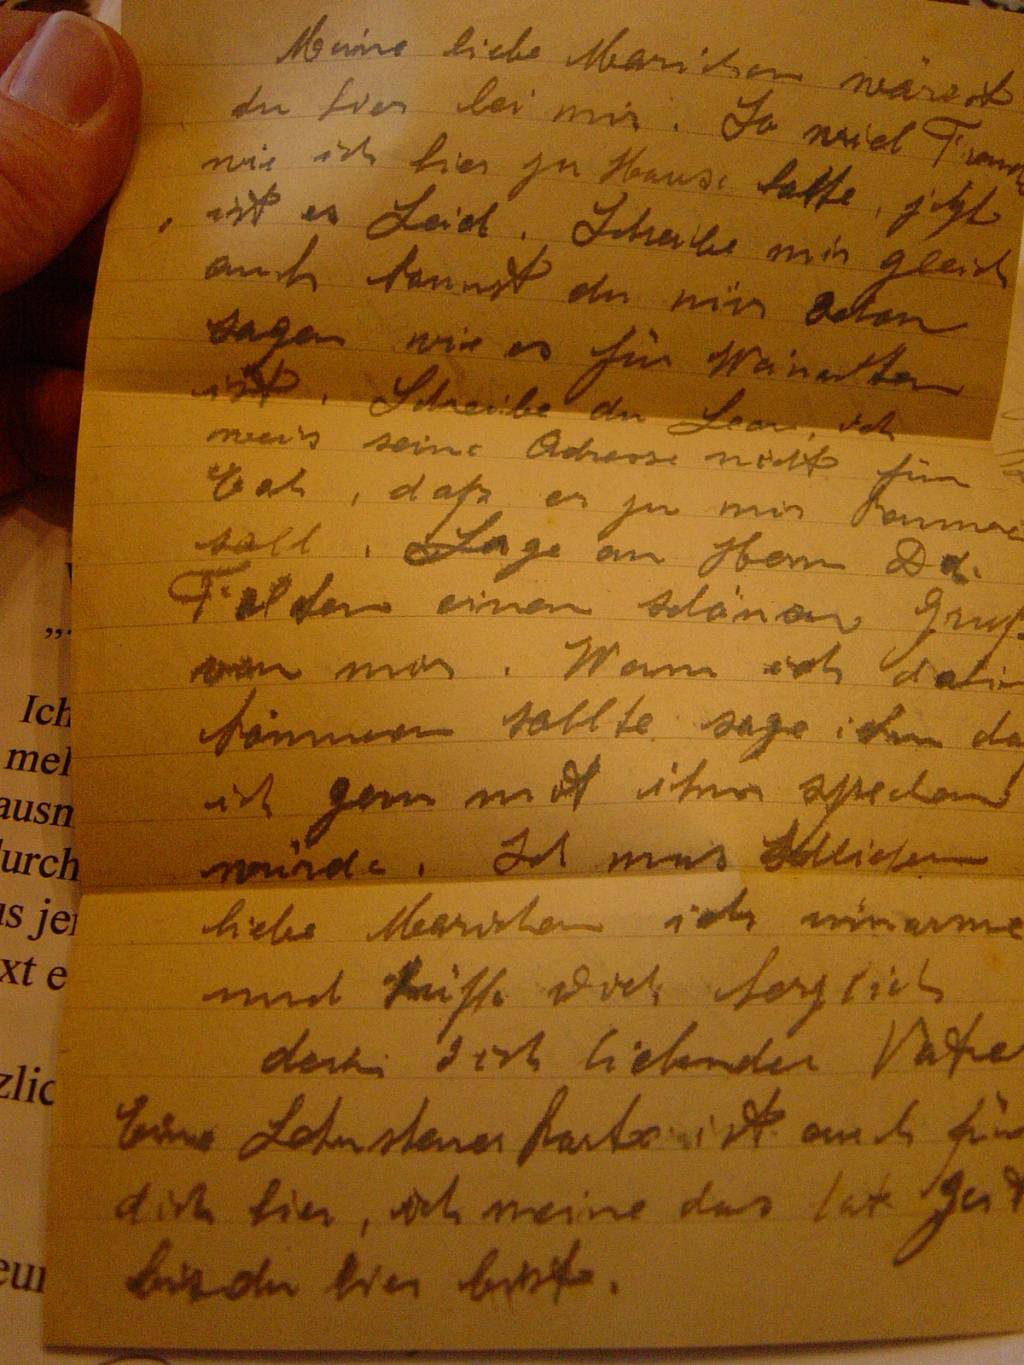 Meine liebe Marichen wärest
du hier bei mir. So viel Freude
wie ich hier zu Hause hatte, jetzt
ist es Leid. Schreibe mir gleich
auch kannst du mir schon
sagen wie es für Weinachten
ist. Schreibe du Leon, ich
weis seine Adresse nicht für
daß er zu mir komme
soll. Sage an Herrn Dr.
einen schönen Gruß
von mir. Wenn ich dahin
kommen sollte sage ihm daß
ich gern mit ihm sprechen
würde. Ich mus schliesen
liebe Marichen ich umarme
und küsse dich herzlich
dein dich liebender Vater
Eine Lohnsteuerkarte ist auch für
dich hier, ich meine das hat Zeit
bis du hier bist.
„
Ich
meh
ausm
durch
us jer
xt e
zlic
eun